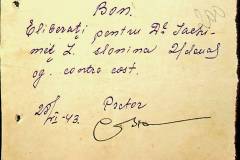 Bon.
Eliberați pentru Dl Iachi-
meț Z. slănina 2/două/
kg. contra cost.
25/VI-43. Pretor